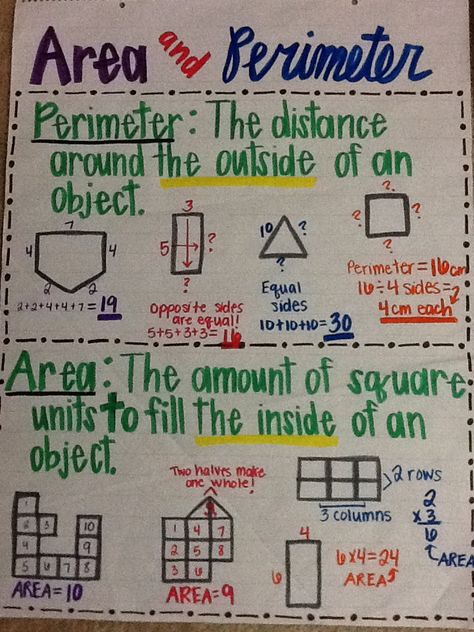 Area and Perimeter
Perimeter: The distance
around the outside of an
object.
7
4
4
2
2
2+2+4+4+7=19
3
5
?
?
Opposite sides
are equal!
5+5+3+3=16
10
?
?
Equal
sides
10+10+10=30
?
?
?
?
Perimeter=16cm
16÷4 sides=?
4cm each
Area: The amount of square
units to fill the inside of an
object.
1
2 3 10
4 9
5 6 7 8
AREA=10
Two halves make
one whole!
9
1 4 7
2 5 8
3 6
AREA=9
2 rows
3 columns
2
x3
6
AREA
4
6
6x4=24
AREA